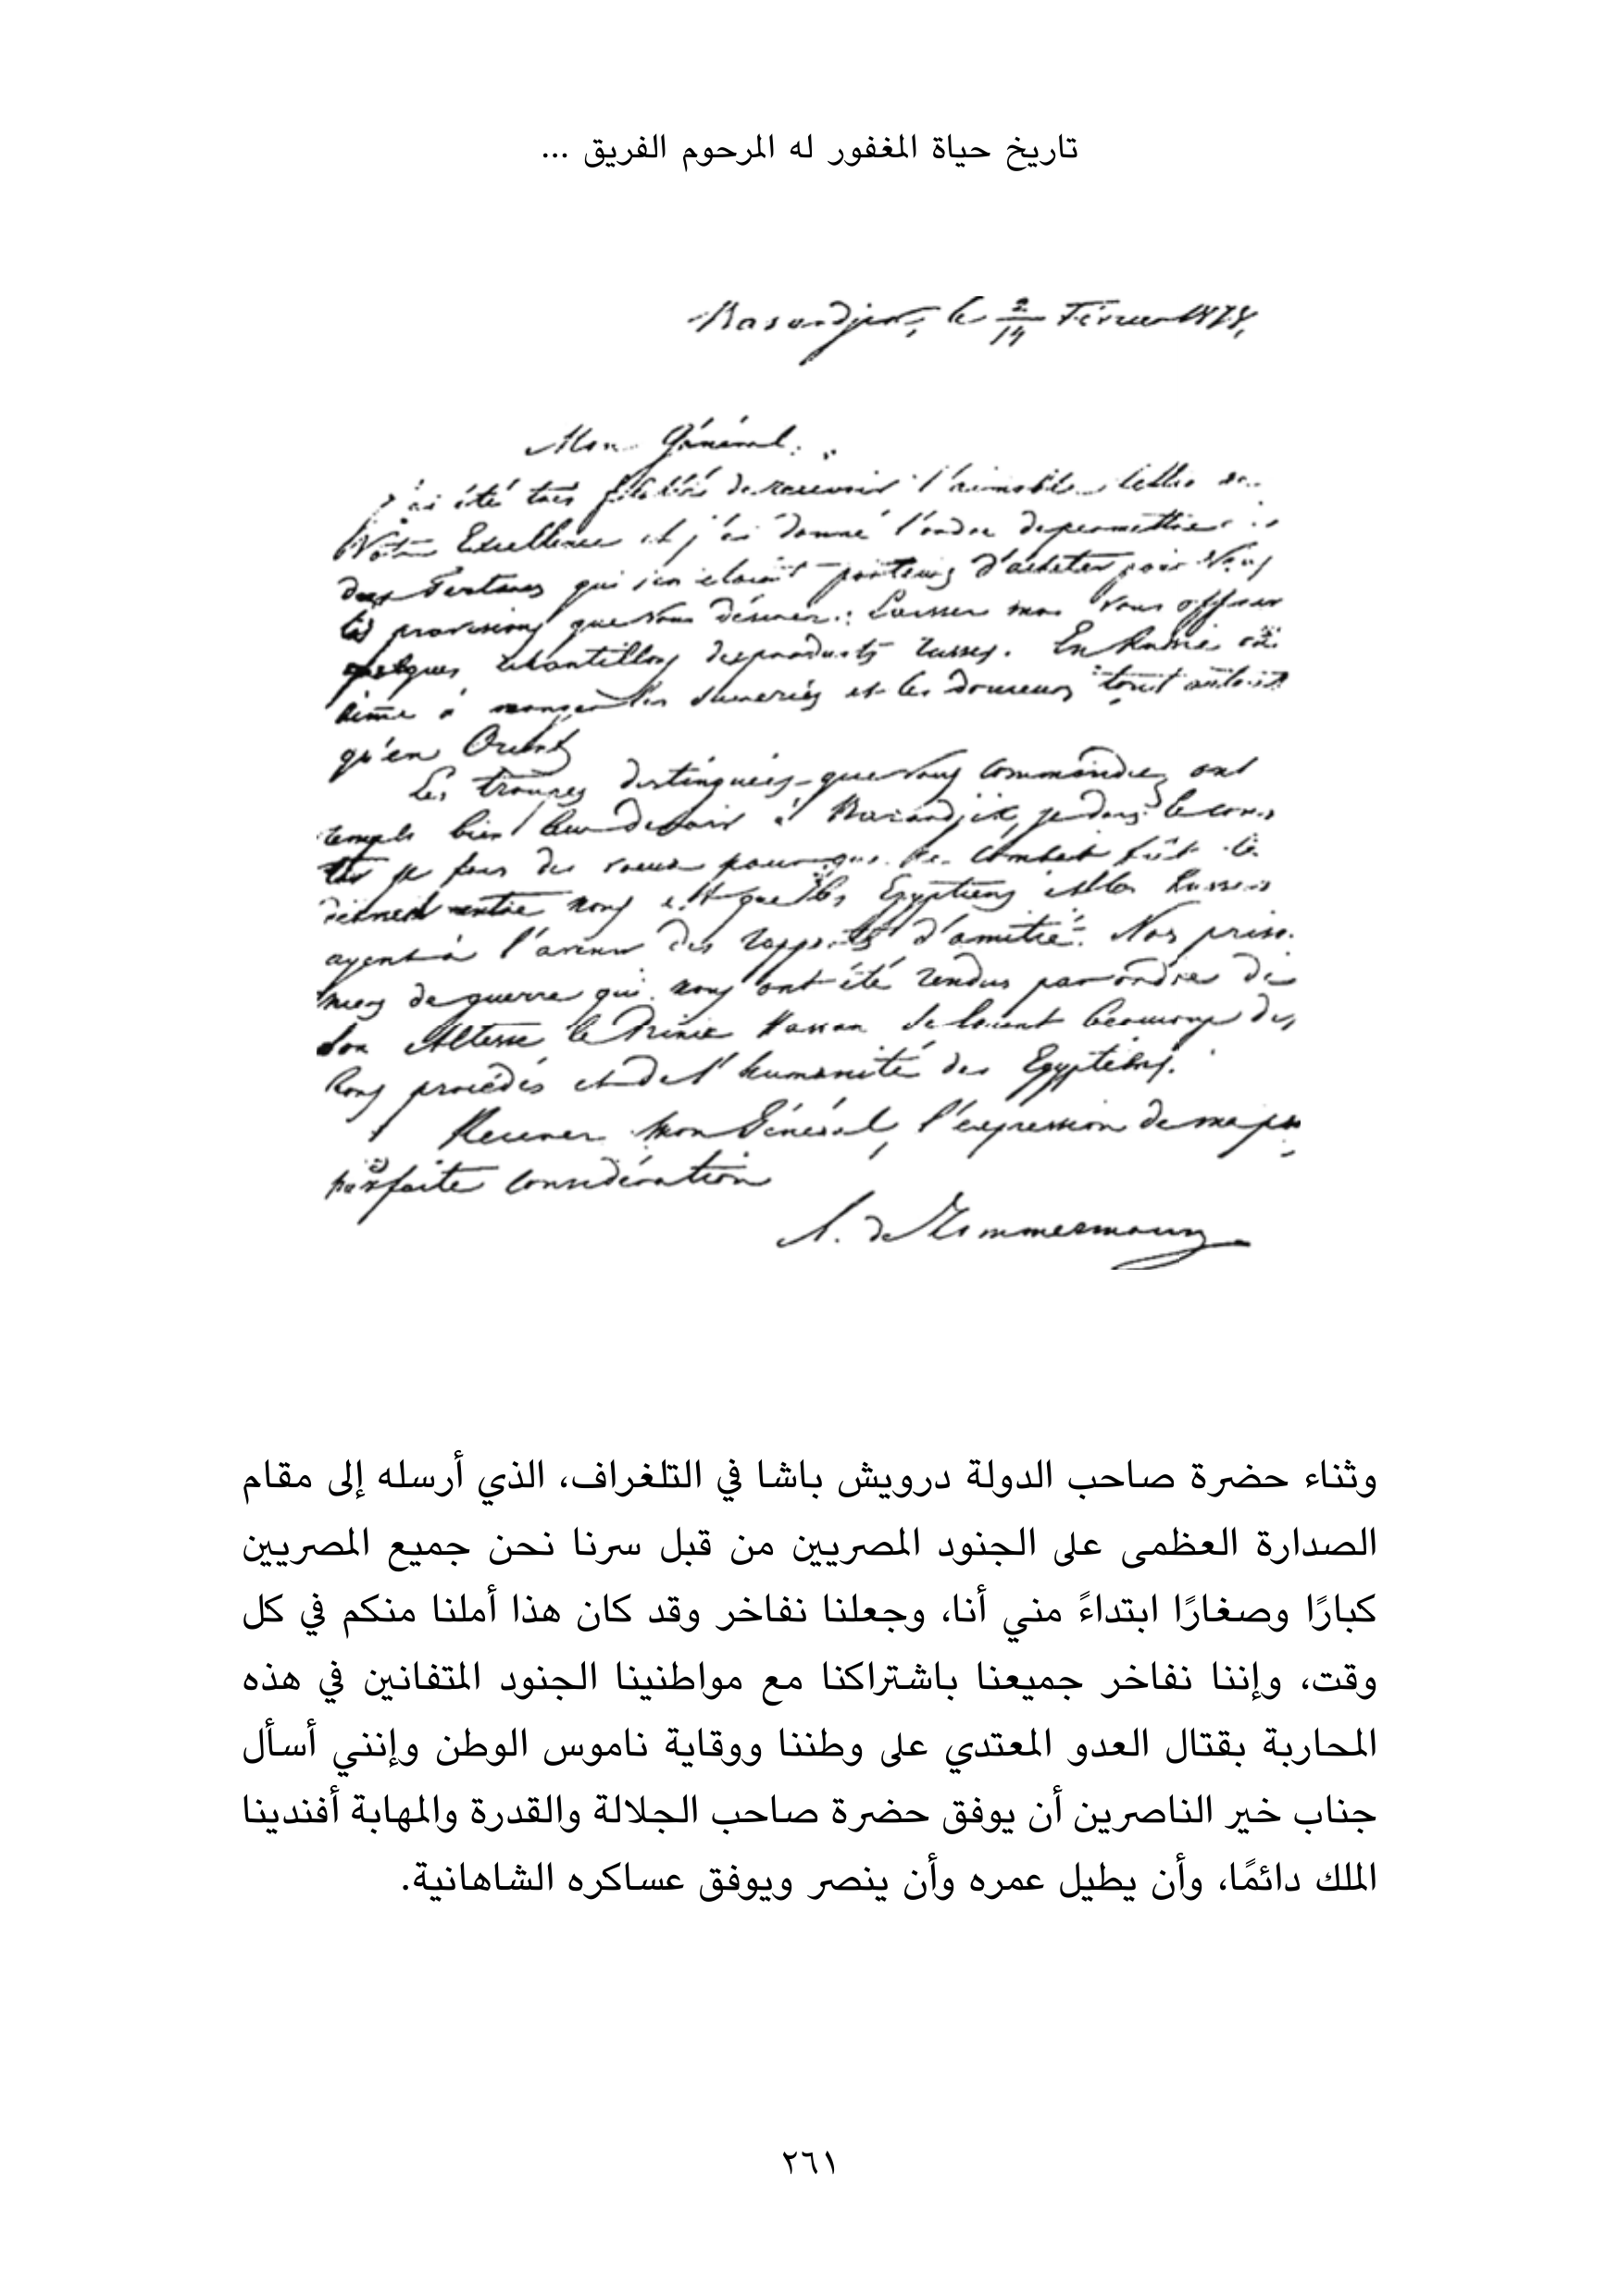 تاريخ حياة المغفور له المرحوم الفريق ...
le 2/14 Février 1878,
Mon Général.
J'ai été très de recevoir l'aimable lettre de
Votre Excellence et j'ai donné l'ordre de permettre
qui porteurs d'acheter pour Vous
les provisions que Vous désirez. Laissez moi Vous offrir
quelques échantillons des produits russes. En Russie on
aime à manger les et les douceurs tout autant
qu'en Orient
Les troupes distinguées que Vous commandez ont
rempli bien leur devoir à Bazardjik, je dois le
je fais des voeux pour que ce combat fût le
dernier entre nous et que les Egyptiens et les Russes
ayent à l'avenir des rapports d'amitié. Nos prison-
niers de guerre qui nous ont été rendus par ordre de
Son Altesse le Prince Hassan se louent beaucoup des
bons procédés et de l'humanité des Egyptiens.
Recevez Mon Général, l'expression de ma
parfaite considération
A. de Zimmermann
وثناء حضرة صاحب الدولة درويش باشا في التلغراف، الذي أرسله إلى مقام
الصدارة العظمى على الجنود المصريين من قبل سرنا نحن جميع المصريين
كبارًا وصغارًا ابتداءً مني أنا، وجعلنا نفاخر وقد كان هذا أملنا منكم في كل
وقت، وإننا نفاخر جميعنا باشتراكنا مع مواطنينا الجنود المتفانين في هذه
المحاربة بقتال العدو المعتدي على وطننا ووقاية ناموس الوطن وإنني أسأل
جناب خير الناصرين أن يوفق حضرة صاحب الجلالة والقدرة والمهابة أفندينا
الملك دائمًا، وأن يطيل عمره وأن ينصر ويوفق عساكره الشاهانية.
٢٦١